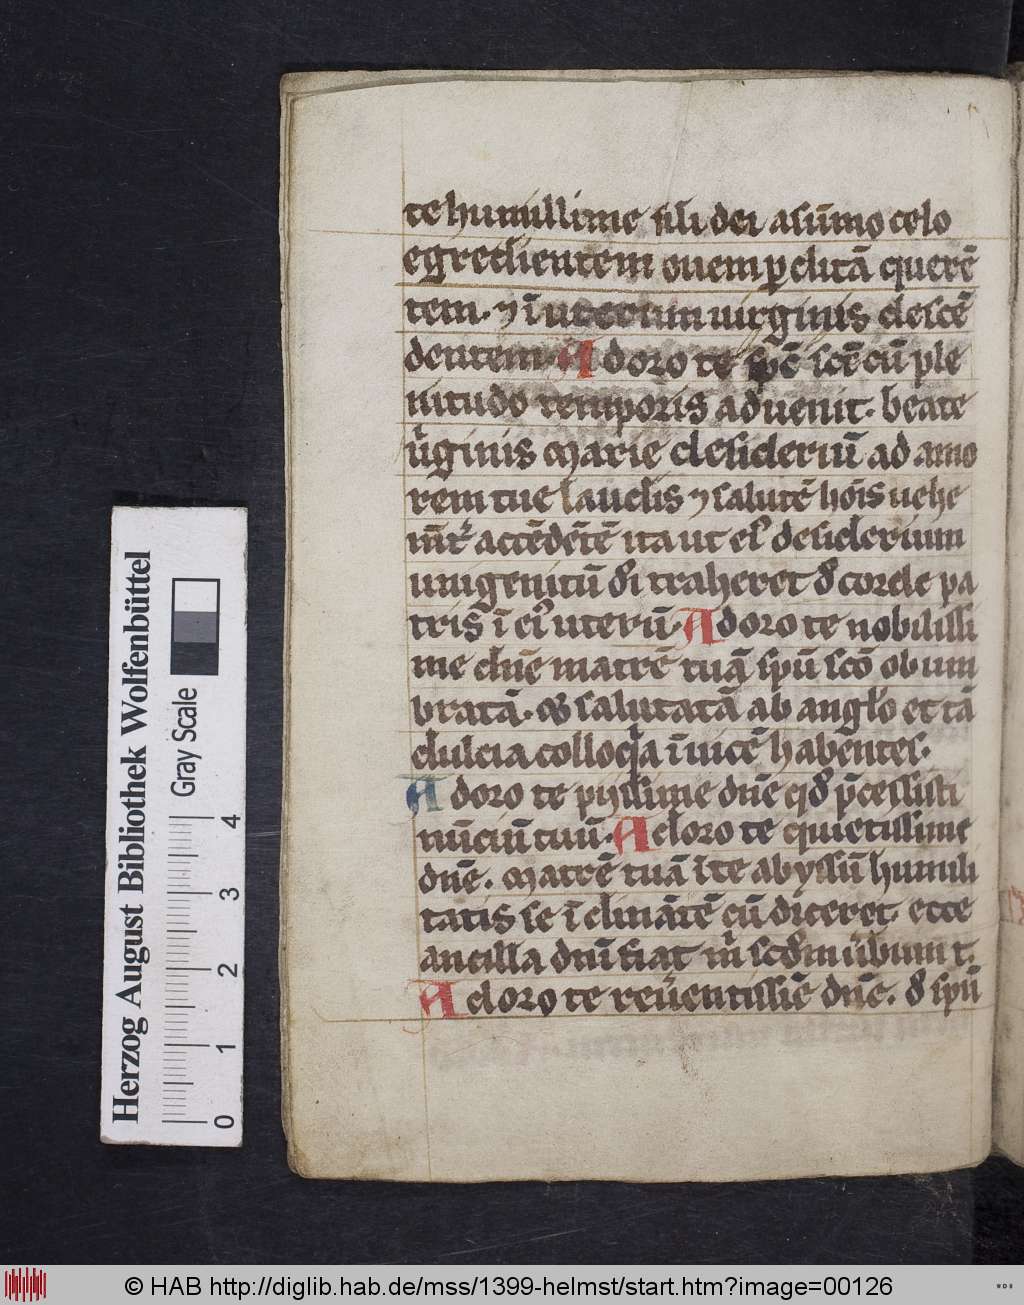 te humillime fili dei a sūmo celo
egredientem ouem ꝑditā querē
tem. ⁊ ī uterum uirginis descē
dentem. Adoro te spc̄ scē cū ple
nitudo temporis aduenit. beate
uͥginis marie desideriū ad amo
rem tue laudis ⁊ salutē hoīs uehe
mt̄ accēdētē ita ut eiꝰ desiderium
unigenitū di traheret d̓ corde pa
tris ī eiꝰ uterū. Adoro te nobilissi
me dn̄e matrē tuā spū scō obum
bratā. salutatā ab anglo et tā
dulcia colloqͥa īuicē habentes.
Adoro te pijssime dn̄e qd̓ p̄cessisti
nūciū tuū. Adoro te quietissime
dn̄e. matrē tuā ī te abyssū humili
tatis se īclināte cū diceret. ecce
ancilla dn̄i fiat mͥ scd̓m ūbum t.
Adoro te reūentissie dn̄e. d̓ spū
Herzog August Bibliothek Wolfenbüttel
Gray Scale
0 1 2 3 4
© HAB http://diglib.hab.de/mss/1399-helmst/start.htm?image=00126